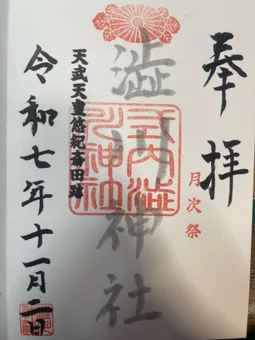 奉拝
月次祭
澁川神社
式内澁川神社
天武天皇悠紀斎田跡
令和七年十一月二日